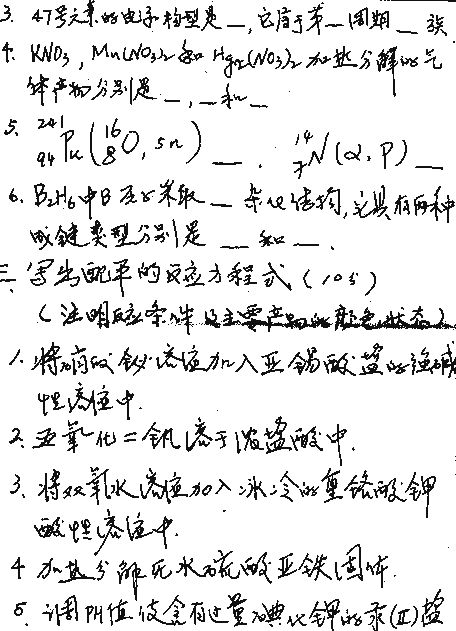 3. 47号元素的电子构型是＿,它属于第＿周期＿族
4. KNO3, Mn(NO3)2和Hg2(NO3)2加热分解的气
体产物分别是＿,＿和＿
5. 241 94 Pu(16 8 O, 5n) ＿. 14 7 N(α, P) ＿
6. B2H6中B原子采取＿杂化结构,它具有两种
成键类型分别是＿和＿.
三、写出配平的反应方程式(10分)
(注明反应条件及主要产物的颜色,状态)
1. 将硝酸铋溶液加入亚锡酸盐的强碱
性溶液中.
2. 五氧化二钒溶于浓盐酸中.
3. 将双氧水溶液加入冰冷的重铬酸钾
酸性溶液中.
4 加热分解无水硫酸亚铁固体.
5. 调PH值使含有过量碘化钾的汞(II)盐